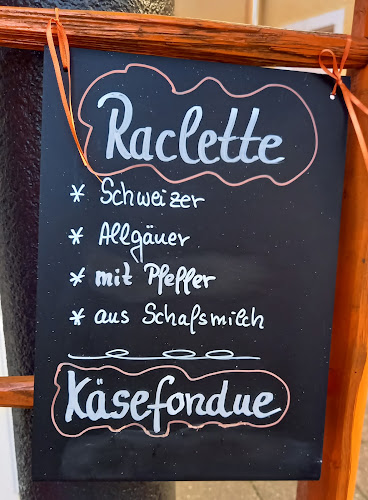 Raclette
* Schweizer
* Allgäuer
* mit Pfeffer
* aus Schafsmilch
Käsefondue